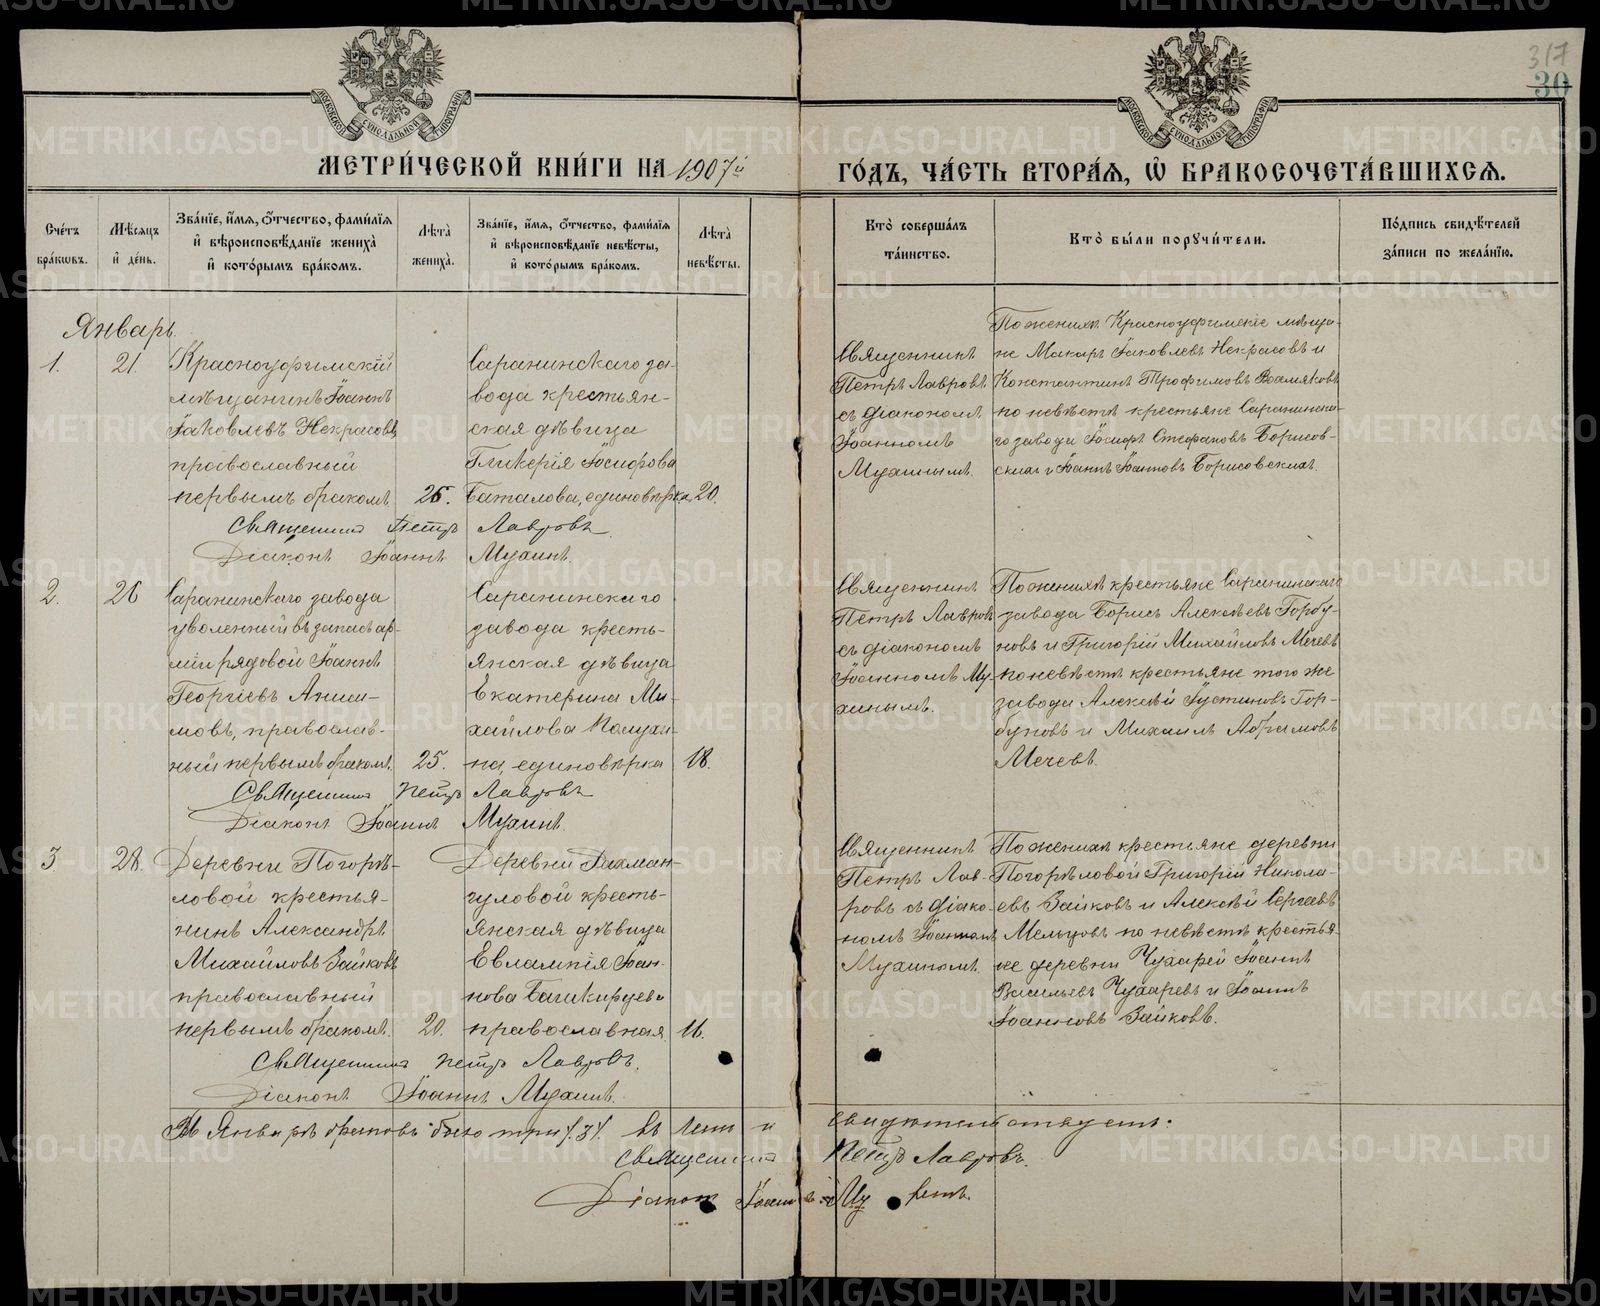 317
30
МОСКОВСКОЙ СѴНОДАЛЬНОЙ ТИПОГРАФІИ
МОСКОВСКОЙ СѴНОДАЛЬНОЙ ТИПОГРАФІИ
МЕТРИ́ЧЕСКОЙ КНИ́ГИ НА 1907й
ГО́ДЪ, ЧА́СТЬ ВТОРА́Я, Ѽ БРАКОСОЧЕТА́ВШИХСЯ.
Сче́тъ
бра́кωвъ.
Мѣ́сяцъ
и҆ де́нь.
Зва́нїе, и҆́мя, ѻ҆́тчество, фами́лїя
и҆ вѣроисповѣ́данїе жениха̀
и҆ кото́рымъ бра́комъ.
Лѣта̀
жениха̀.
Зва́нїе, и҆́мя, ѻ҆́тчество, фами́лїя
и҆ вѣроисповѣ́данїе невѣ́сты,
и҆ кото́рымъ бра́комъ.
Лѣта̀
невѣ́сты.
Кто̀ соверша́лъ
та́инство.
Кто̀ бы́ли порꙋчи́тели.
По́дпись свидѣ́телей
за́писи по жела́нїю.
Январь.
1.
21.
Красноуфимскій
мѣщанинъ Іоаннъ
Іаковлевъ Некрасовъ,
православный
первымъ бракомъ.
25.
Саранинскаго за-
вода крестьян-
ская дѣвица
Гликерія Іосифова
Баталова, единовѣрка
20.
Священникъ
Петръ Лавровъ
съ діакономъ
Іоанномъ
Мухинымъ.
По женихѣ Красноуфимскіе мѣща-
не Макаръ Іаковлевъ Некрасовъ и
Константинъ Трофимовъ
по невѣстѣ крестьяне Саранинска-
го завода Іосифъ Стефановъ Борисов-
скихъ и Іоаннъ Іоанновъ Борисовскихъ.
Священникъ Петръ Лавровъ
Діаконъ Іоаннъ Мухинъ.
2.
26
Саранинскаго завода
уволенный въ запасъ ар-
міи рядовой Іоаннъ
Георгіевъ Аниси-
мовъ, православ-
ный первымъ бракомъ.
25.
Саранинскаго
завода кресть-
янская дѣвица
Екатерина Ми-
хайлова
на, единовѣрка
18.
Священникъ
Петръ Лавровъ
съ діакономъ
Іоанномъ Му-
хинымъ.
По женихѣ крестьяне Саранинскаго
завода Борисъ Алексѣевъ Горбу-
новъ и Григорій Михайловъ Мечевъ
по невѣстѣ крестьяне того же
завода Алексѣй Іустиновъ Гор-
буновъ и Михаилъ Абрамовъ
Мечевъ.
Священникъ Петръ Лавровъ
Діаконъ Іоаннъ Мухинъ.
3
28.
Деревни Погорѣ-
ловой крестья-
нинъ Александръ
Михайловъ Зайковъ
православный
первымъ бракомъ.
20.
Деревни Рахман-
гуловой кресть-
янская дѣвица
Евлампія Іоан-
нова Башкирцева
православная
16.
Священникъ
Петръ Лав-
ровъ съ діако-
номъ Іоанномъ
Мухинымъ.
По женихѣ крестьяне деревни
Погорѣловой Григорій Никола-
евъ Зайковъ и Алексѣй Сергѣевъ
Мельцовъ по невѣстѣ крестья-
не деревни Чухарей Іоаннъ
Васильевъ Чухаревъ и Іоаннъ
Іоанновъ Зайковъ.
Священникъ Петръ Лавровъ.
Діаконъ Іоаннъ Мухинъ.
Въ Январѣ браковъ было три /.3/. въ чемъ и свидѣтельствуемъ:
Священникъ Петръ Лавровъ.
Діаконъ Іоаннъ Мухинъ.
METRIKI.GASO-URAL.RU